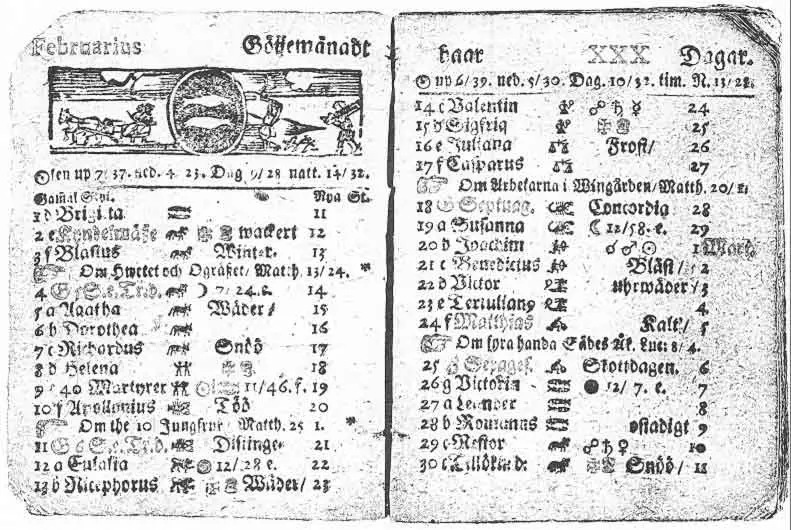 Februarius Göijemånadt
Solen up 7/37. ned. 4. 23. Dag 9/28 natt. 14/32.
Gamal Styl. Nya St.
1 d Brigitta 11
2 e Kyndelmässe wackert 12
3 f Blasius Winter. 13
Om Hwetet och Ogräset/ Matth. 13/24. *
4 G 7/24. 14
5 a Agatha Wäder/ 15
6 b Dorothea 16
7 c Richardus Snöö 17
8 d Helena 18
9 e 40 Martyrer 11/46. f. 19
10 f Apollonius Töö 20
Om the 10 Jungfrur Matth. 25 1. *
11 G Distinge 21
12 a Eulalia 12/28 e. 22
13 b Nicephorus Wäder/ 23
haar XXX Dagar.
☉ up 6/39. ned. 5/30. Dag. 10/32. tim. N. 13/28.
14 c Valentin ☍ ♄ ☿ 24
15 d Sigfrid 25
16 e Juliana Frost/ 26
17 f Casparus 27
Om Arbetarna i Wingården/ Matth. 20/1.
18 G Septuag. Concordia 28
19 a Susanna ☾ 12/58. e. 29
20 b Joachim ☌ ♂ ☉ 1 Mart.
21 c Benedictus Bläst/ 2
22 d Victor uhrwäder/ 3
23 e Tertulian9 4
24 f Matthias Kalt/ 5
Om fyra handa Sädes Åk. Luc: 8/4.
25 G Sexages. Skottdagen. 6
26 g Victorin ● 12/7. e. 7
27 a Leander 8
28 b Romanus ostadigt 9
29 c Nestor ☍ ♄ ♀ 10
30 c Snöö/ 11